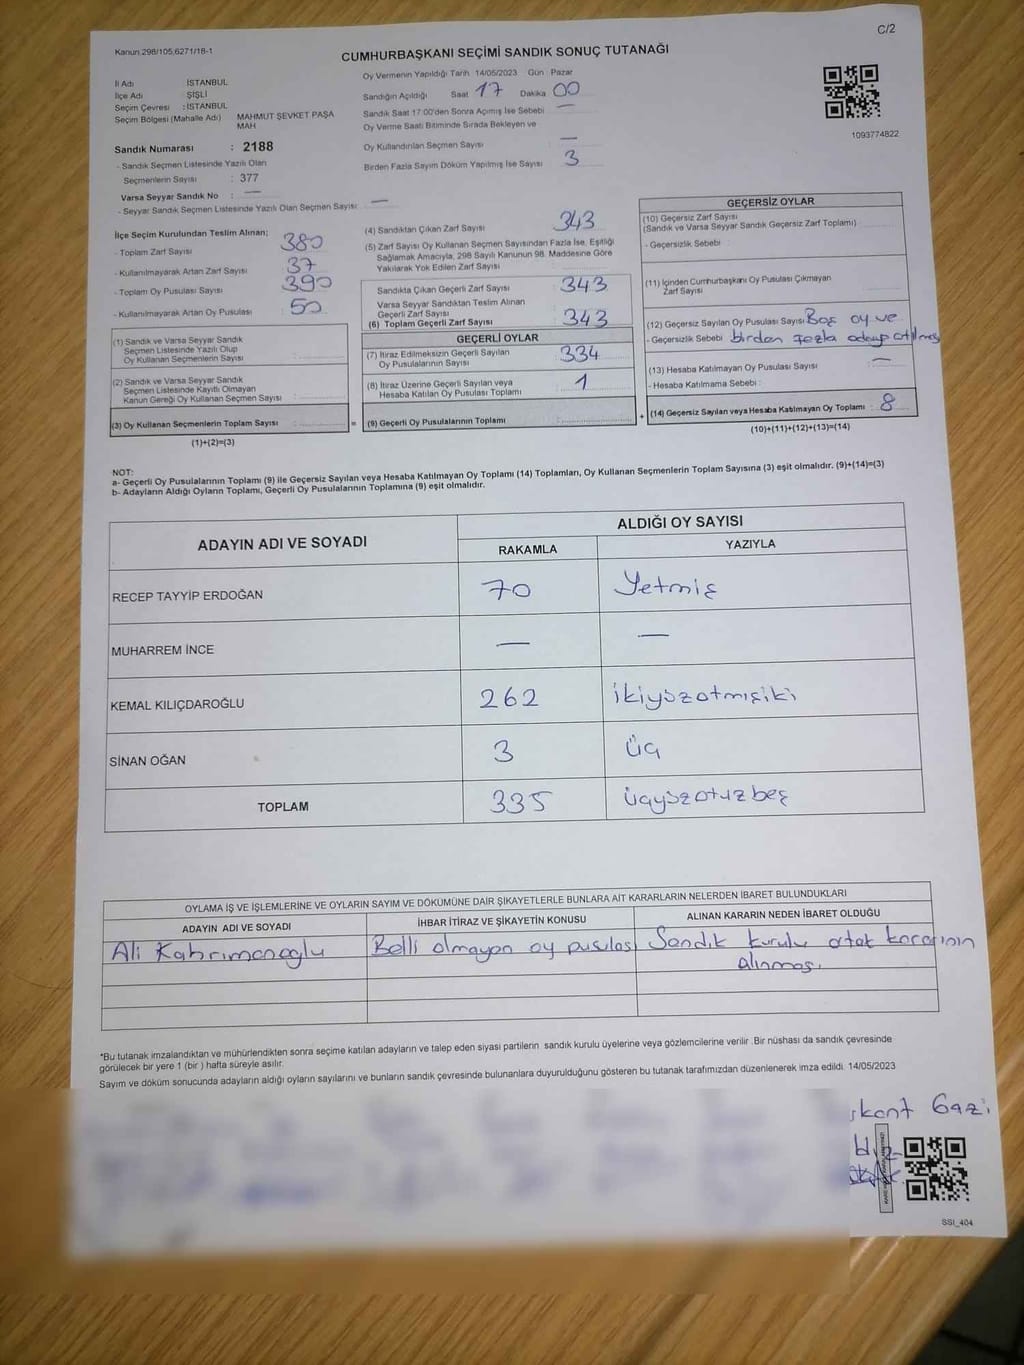 C/2
Kanun.298/105,6271/18-1
CUMHURBAŞKANI SEÇİMİ SANDIK SONUÇ TUTANAĞI
İl Adı İSTANBUL
İlçe Adı ŞİŞLİ
Seçim Çevresi : İSTANBUL
Seçim Bölgesi (Mahalle Adı) MAHMUT ŞEVKET PAŞA MAH
Sandık Numarası : 2188
- Sandık Seçmen Listesinde Yazılı Olan
Seçmenlerin Sayısı : 377
Varsa Seyyar Sandık No : —
- Seyyar Sandık Seçmen Listesinde Yazılı Olan Seçmen Sayısı: —
Oy Vermenin Yapıldığı Tarih 14/05/2023 Gün Pazar
Sandığın Açıldığı Saat 17 Dakika 00
Sandık Saat 17:00'den Sonra Açımış İse Sebebi —
Oy Verme Saati Bitiminde Sırada Bekleyen ve
Oy Kullandırılan Seçmen Sayısı —
Birden Fazla Sayım Döküm Yapılmış İse Sayısı 3
1093774822
İlçe Seçim Kurulundan Teslim Alınan;
- Toplam Zarf Sayısı : 380
- Kullanılmayarak Artan Zarf Sayısı : 37
- Toplam Oy Pusulası Sayısı : 390
- Kullanılmayarak Artan Oy Pusulası : 50
(1) Sandık ve Varsa Seyyar Sandık
Seçmen Listesinde Yazılı Olup
Oy Kullanan Seçmenlerin Sayısı :
(2) Sandık ve Varsa Seyyar Sandık
Seçmen Listesinde Kayıtlı Olmayan
Kanun Gereği Oy Kullanan Seçmen Sayısı :
(3) Oy Kullanan Seçmenlerin Toplam Sayısı :
(1)+(2)=(3)
(4) Sandıktan Çıkan Zarf Sayısı : 343
(5) Zarf Sayısı Oy Kullanan Seçmen Sayısından Fazla İse, Eşitliği
Sağlamak Amacıyla, 298 Sayılı Kanunun 98. Maddesine Göre
Yakılarak Yok Edilen Zarf Sayısı :
Sandıkta Çıkan Geçerli Zarf Sayısı : 343
Varsa Seyyar Sandıktan Teslim Alınan
Geçerli Zarf Sayısı :
(6) Toplam Geçerli Zarf Sayısı : 343
GEÇERLİ OYLAR
(7) İtiraz Edilmeksizin Geçerli Sayılan
Oy Pusulalarının Sayısı : 334
(8) İtiraz Üzerine Geçerli Sayılan veya
Hesaba Katılan Oy Pusulası Toplamı : 1
= (9) Geçerli Oy Pusulalarının Toplamı :
GEÇERSİZ OYLAR
(10) Geçersiz Zarf Sayısı
(Sandık ve Varsa Seyyar Sandık Geçersiz Zarf Toplamı) :
- Geçersizlik Sebebi :
(11) İçinden Cumhurbaşkanı Oy Pusulası Çıkmayan
Zarf Sayısı
(12) Geçersiz Sayılan Oy Pusulası Sayısı Boş oy ve
- Geçersizlik Sebebi birden fazla adaya atılmış
(13) Hesaba Katılmayan Oy Pusulası Sayısı : —
- Hesaba Katılmama Sebebi :
+ (14) Geçersiz Sayılan veya Hesaba Katılmayan Oy Toplamı : 8
(10)+(11)+(12)+(13)=(14)
NOT:
a- Geçerli Oy Pusulalarının Toplamı (9) ile Geçersiz Sayılan veya Hesaba Katılmayan Oy Toplamı (14) Toplamları, Oy Kullanan Seçmenlerin Toplam Sayısına (3) eşit olmalıdır. (9)+(14)=(3)
b- Adayların Aldığı Oyların Toplamı, Geçerli Oy Pusulalarının Toplamına (9) eşit olmalıdır.
ADAYIN ADI VE SOYADI ALDIĞI OY SAYISI
RAKAMLA YAZIYLA
RECEP TAYYİP ERDOĞAN 70 Yetmiş
MUHARREM İNCE — —
KEMAL KILIÇDAROĞLU 262 ikiyüzatmışiki
SİNAN OĞAN 3 üç
TOPLAM 335 üçyüzotuzbeş
OYLAMA İŞ VE İŞLEMLERİNE VE OYLARIN SAYIM VE DÖKÜMÜNE DAİR ŞİKAYETLERLE BUNLARA AİT KARARLARIN NELERDEN İBARET BULUNDUKLARI
ADAYIN ADI VE SOYADI İHBAR İTİRAZ VE ŞİKAYETİN KONUSU ALINAN KARARIN NEDEN İBARET OLDUĞU
Ali Kahrımanoglu Belli olmayan oy pusulası Sandık kurulu ortak kararının
alınması.
*Bu tutanak imzalandıktan ve mühürlendikten sonra seçime katılan adayların ve talep eden siyasi partilerin sandık kurulu üyelerine veya gözlemcilerine verilir .Bir nüshası da sandık çevresinde
görülecek bir yere 1 (bir ) hafta süreyle asılır.
Sayım ve döküm sonucunda adayların aldığı oyların sayılarını ve bunların sandık çevresinde bulunanlara duyurulduğunu gösteren bu tutanak tarafımızdan düzenlenerek imza edildi. 14/05/2023
Gazi
SSI_404